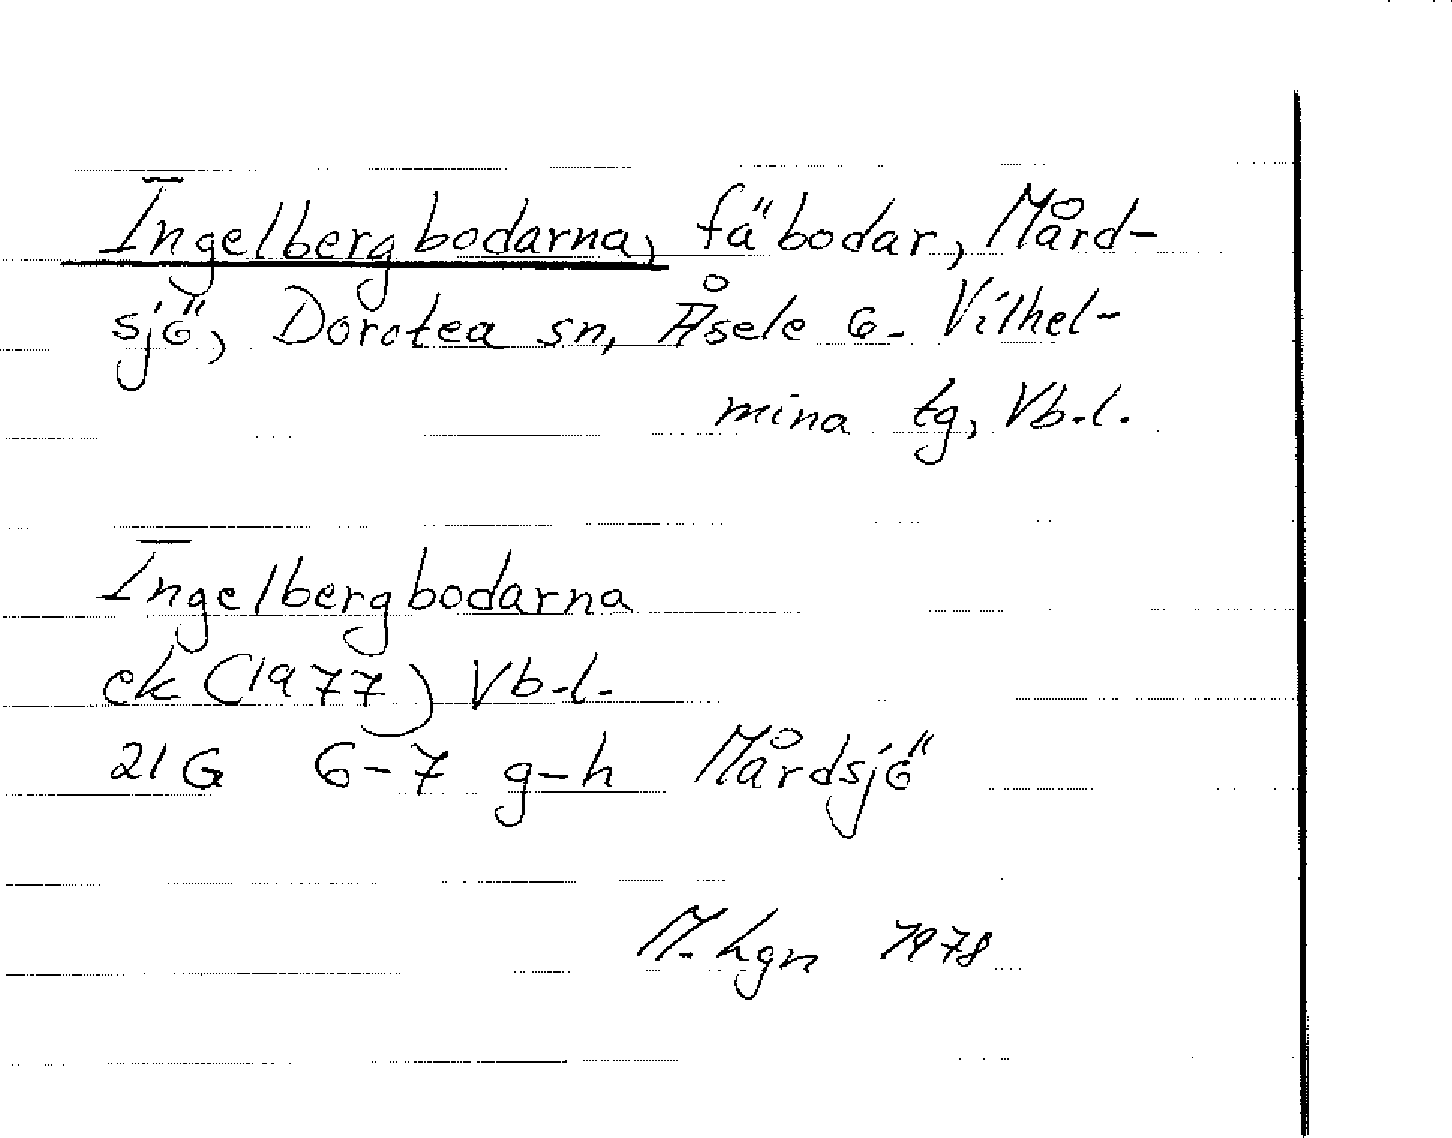 Ingelbergbodarna, fäbodar, Mård-
sjö, Dorotea sn, Åsele o. Vilhel-
mina tg, Vb.l.
Ingelbergbodarna
ek (1977) Vb.l.
21 G 6-7 g-h Mårdsjö
M. hgn 1978